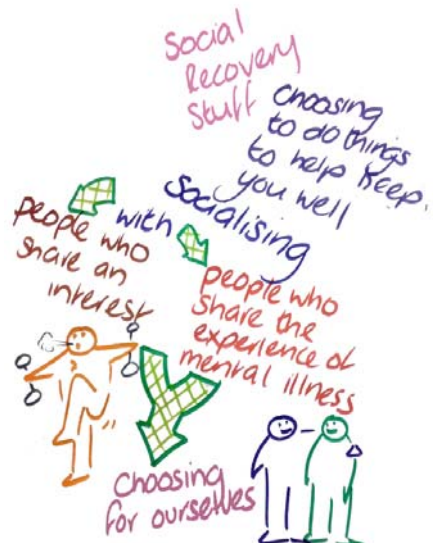 Social
Recovery
Stuff
Choosing
to do things
to help keep
you well
Socialising
with
people who
share an
interest
people who
share the
experience of
mental illness
Choosing
for ourselves